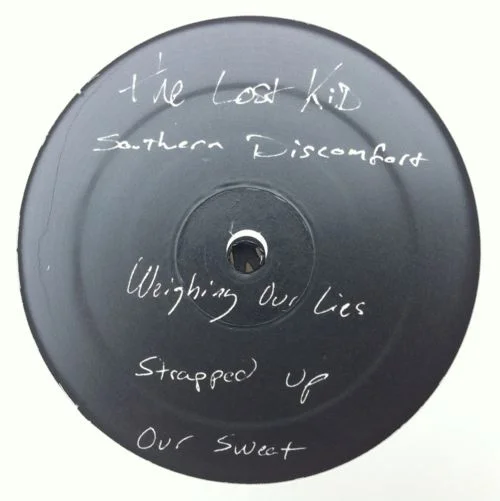 the Lost KiD
Southern Discomfort
Weighing Our Lies
Strapped Up
Our Sweat